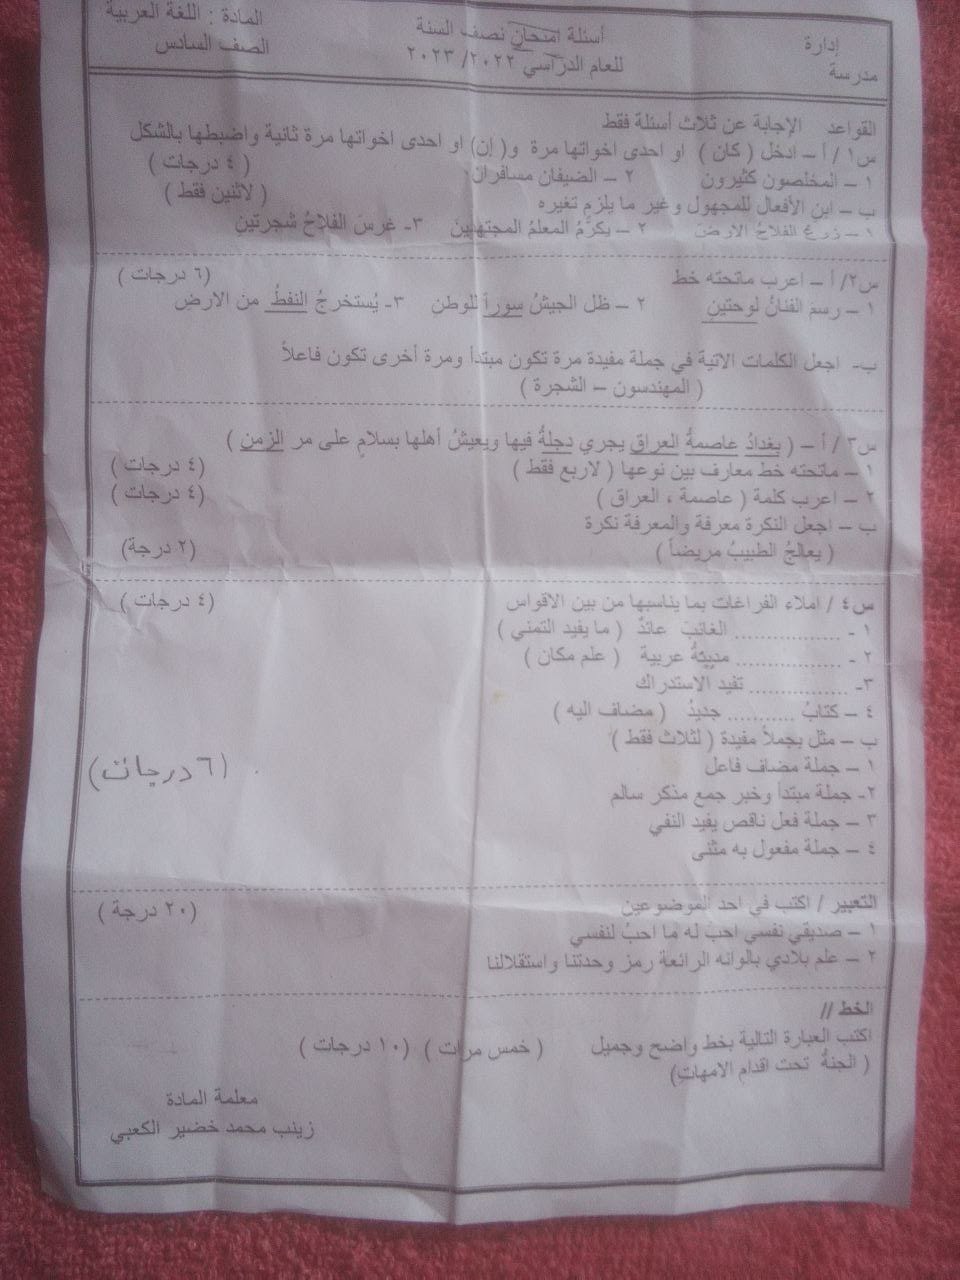 إدارة
مدرسة
أسئلة امتحان نصف السنة
للعام الدراسي ٢٠٢٢/ ٢٠٢٣
المادة : اللغة العربية
الصف السادس
القواعد الإجابة عن ثلاث أسئلة فقط
س١ / أ – ادخل ( كان ) او احدى اخواتها مرة و( إن) او احدى اخواتها مرة ثانية واضبطها بالشكل
١ – المخلصون كثيرون ٢ – الضيفان مسافران ( ٤ درجات )
ب – ابنِ الأفعال للمجهول وغير ما يلزم تغيره ( لاثنين فقط )
١ – زرع الفلاحُ الارضَ ٢ – يكرّمُ المعلمُ المجتهدينَ ٣- غرسَ الفلاحُ شجرتينِ
س٢/ أ – اعرب ماتحته خط (٦ درجات )
١ – رسمَ الفنانُ لوحتينِ ٢ – ظل الجيشُ سوراً للوطن ٣- يُستخرجُ النفطُ من الارضِ
ب- اجعل الكلمات الاتية في جملة مفيدة مرة تكون مبتدأ ومرة أخرى تكون فاعلاً
( المهندسون – الشجرة )
س٣ / أ – ( بغدادُ عاصمةُ العراقِ يجري دجلةُ فيها ويعيشُ أهلها بسلامٍ على مر الزمن )
١ – ماتحته خط معارف بين نوعها ( لاربع فقط ) (٤ درجات )
٢ – اعرب كلمة ( عاصمة ، العراق ) (٤ درجات )
ب – اجعل النكرة معرفة والمعرفة نكرة
( يعالجُ الطبيبُ مريضاً ) (٢ درجة)
س٤ / املاء الفراغات بما يناسبها من بين الاقواس (٤ درجات )
١ - ................ الغائبَ عائدٌ ( ما يفيد التمني )
٢ - ................ مدينةٌ عربية ( علم مكان )
٣- .............. تفيد الاستدراك
٤ – كتابُ .......... جديدٌ ( مضاف اليه )
ب – مثل بجملاً مفيدة ( لثلاث فقط )
١ – جملة مضاف فاعل (٦ درجات)
٢- جملة مبتدأ وخبر جمع مذكر سالم
٣ – جملة فعل ناقص يفيد النفي
٤ – جملة مفعول به مثنى
التعبير / اكتب في احد الموضوعين (٢٠ درجة )
١ – صديقي نفسي احبَ له ما احبُ لنفسي
٢ – علم بلادي بالوانه الرائعة رمز وحدتنا واستقلالنا
الخط //
اكتب العبارة التالية بخط واضح وجميل ( خمس مرات ) (١٠ درجات )
( الجنةُ تحت اقدام الامهاتِ)
معلمة المادة
زينب محمد خضير الكعبي